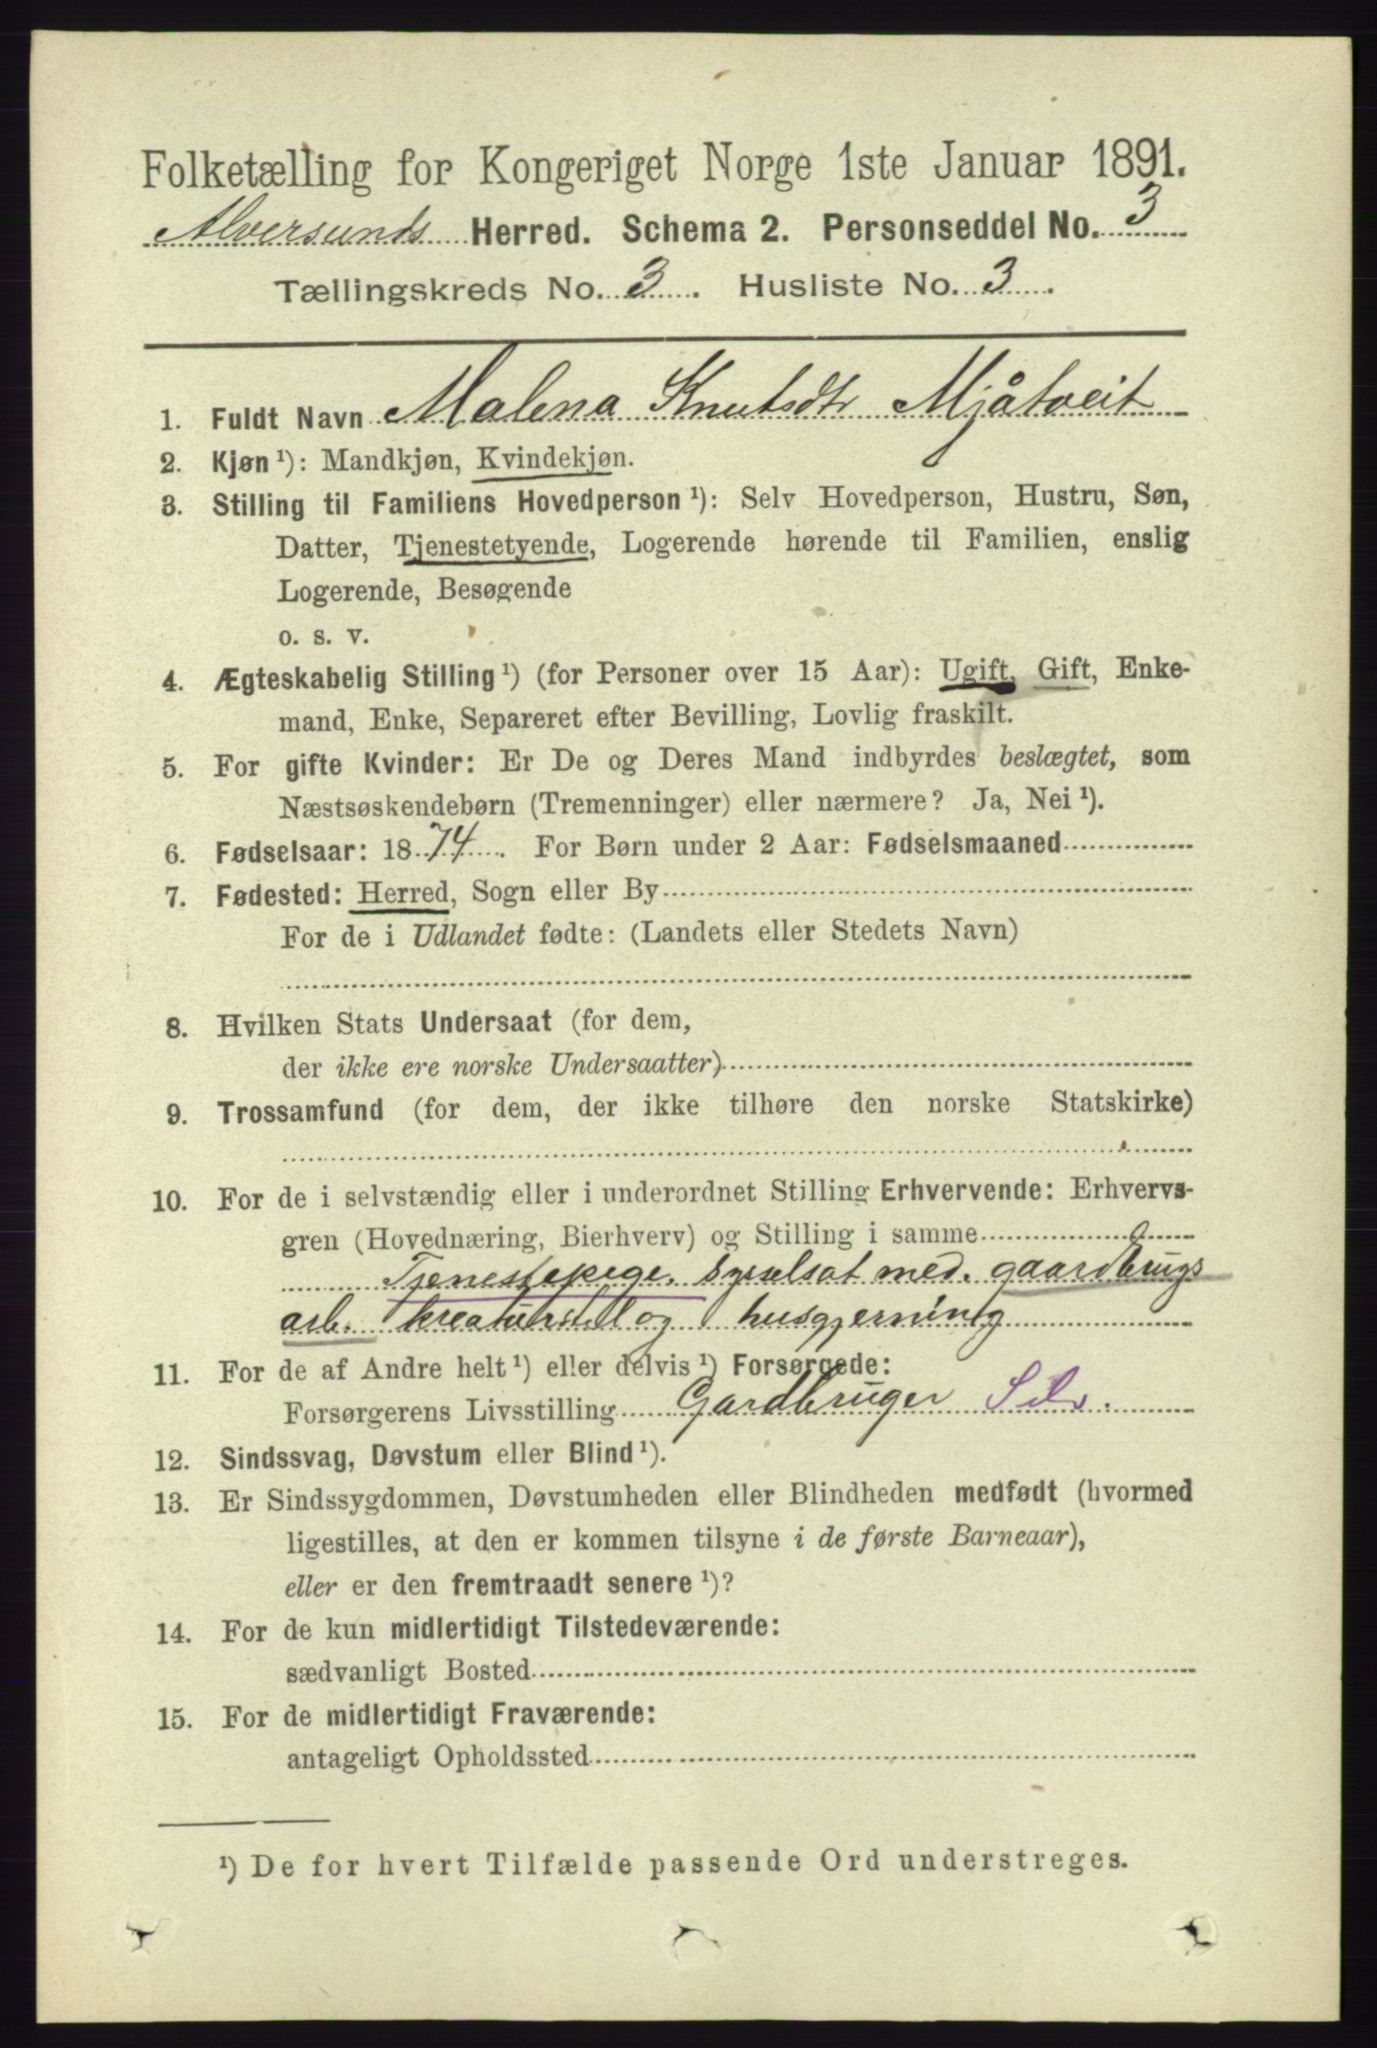 Folketælling for Kongeriget Norge 1ste Januar 1891.
Alversunds Herred. Schema 2. Personseddel No. 3
Tællingskreds No. 3. Husliste No. 3.
1. Fuldt Navn Malena Knutsdtr Mjåtveit
2. Kjøn ¹): Mandkjøn, Kvindekjøn.
3. Stilling til Familiens Hovedperson ¹): Selv Hovedperson, Hustru, Søn,
Datter, Tjenestetyende, Logerende hørende til Familien, enslig
Logerende, Besøgende
o. s. v.
4. Ægteskabelig Stilling ¹) (for Personer over 15 Aar): Ugift, Gift, Enke-
mand, Enke, Separeret efter Bevilling, Lovlig fraskilt.
5. For gifte Kvinder: Er De og Deres Mand indbyrdes beslægtet, som
Næstsøskendebørn (Tremenninger) eller nærmere? Ja, Nei ¹).
6. Fødselsaar: 1874. For Børn under 2 Aar: Fødselsmaaned
7. Fødested: Herred, Sogn eller By
For de i Udlandet fødte: (Landets eller Stedets Navn)
8. Hvilken Stats Undersaat (for dem,
der ikke ere norske Undersaatter)
9. Trossamfund (for dem, der ikke tilhøre den norske Statskirke)
10. For de i selvstændig eller i underordnet Stilling Erhvervende: Erhvervs-
gren (Hovednæring, Bierhverv) og Stilling i samme
Tjenestepige. sysselsat med. gaardbrugs
arb. kreaturstel og husgjerning
11. For de af Andre helt ¹) eller delvis ¹) Forsørgede:
Forsørgerens Livsstilling Gardbruger Selv.
12. Sindssvag, Døvstum eller Blind ¹).
13. Er Sindssygdommen, Døvstumheden eller Blindheden medfødt (hvormed
ligestilles, at den er kommen tilsyne i de første Barneaar),
eller er den fremtraadt senere ¹)?
14. For de kun midlertidigt Tilstedeværende:
sædvanligt Bosted
15. For de midlertidigt Fraværende:
antageligt Opholdssted
¹) De for hvert Tilfælde passende Ord understreges.